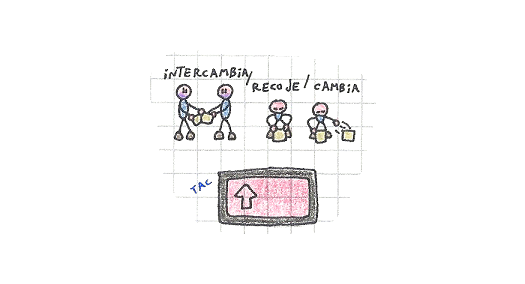 iNTERCAMBIA/
RECOJE/ CAMBIA
TAC